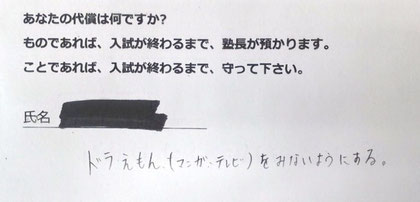 あなたの代償は何ですか?
ものであれば、入試が終わるまで、塾長が預かります。
ことであれば、入試が終わるまで、守って下さい。
氏名
ドラえもん、(マンガ、テレビ)をみないようにする。